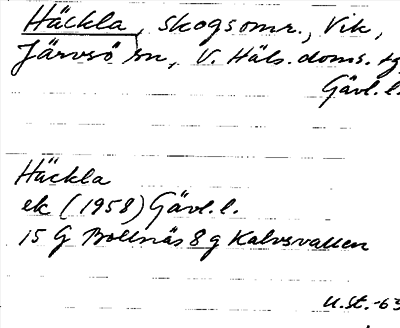 Häckla, skogsomr., Vik,
Järvsö sn, V. Häls. doms. tg
Gävl. l.
Häckla
ek (1958) Gävl. l.
15 G Bollnäs 8 g Kalvsvallen
U.St. -63